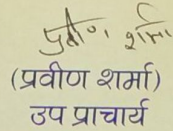 प्रवीण शर्मा
(प्रवीण शर्मा)
उप प्राचार्य